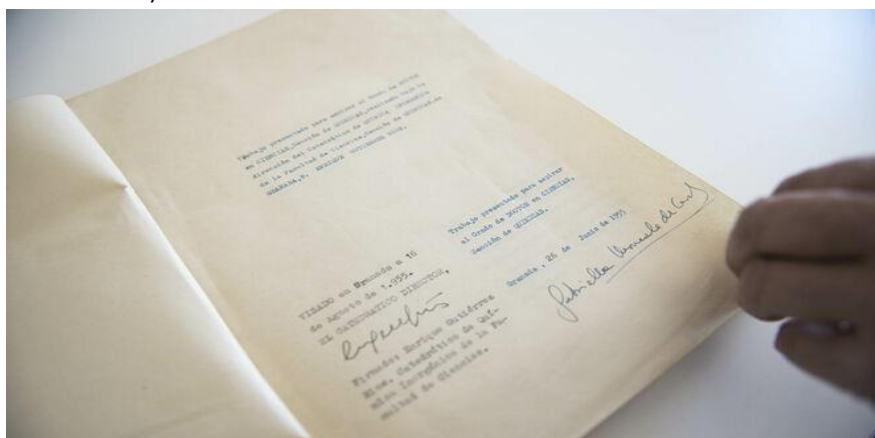 Trabajo presentado para aspirar al Grado de DOCTOR
en CIENCIAS, Sección de QUIMICAS, realizado bajo la
dirección del Catedrático de QUIMICA INORGANICA
de la Facultad de Ciencias, Sección de QUIMICAS, de
GRANADA, D. ENRIQUE GUTIERREZ RIOS.
Trabajo presentado para aspirar
al Grado de DOCTOR en CIENCIAS,
Sección de QUIMICAS.
Granada , 26 de Junio de 1955
VISADO en Granada a 16
de Agosto de 1.955.
EL CATEDRATICO DIRECTOR,
Firmado: Enrique Gutiérrez
Ríos. Catedrático de Quí-
mica Inorgánica de la Fa-
cultad de Ciencias.